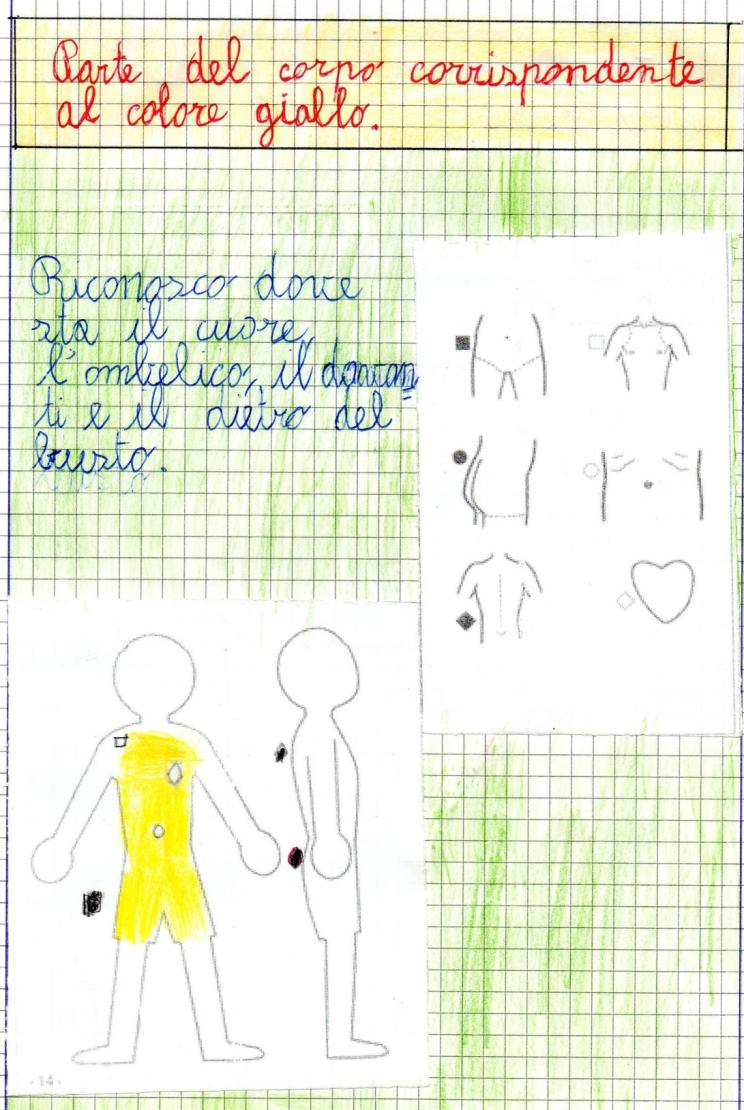 Parte del corpo corrispondente
al colore giallo.
Riconosco dove
sta il cuore,
l'ombelico, il davan
ti e il dietro del
busto.
-14-